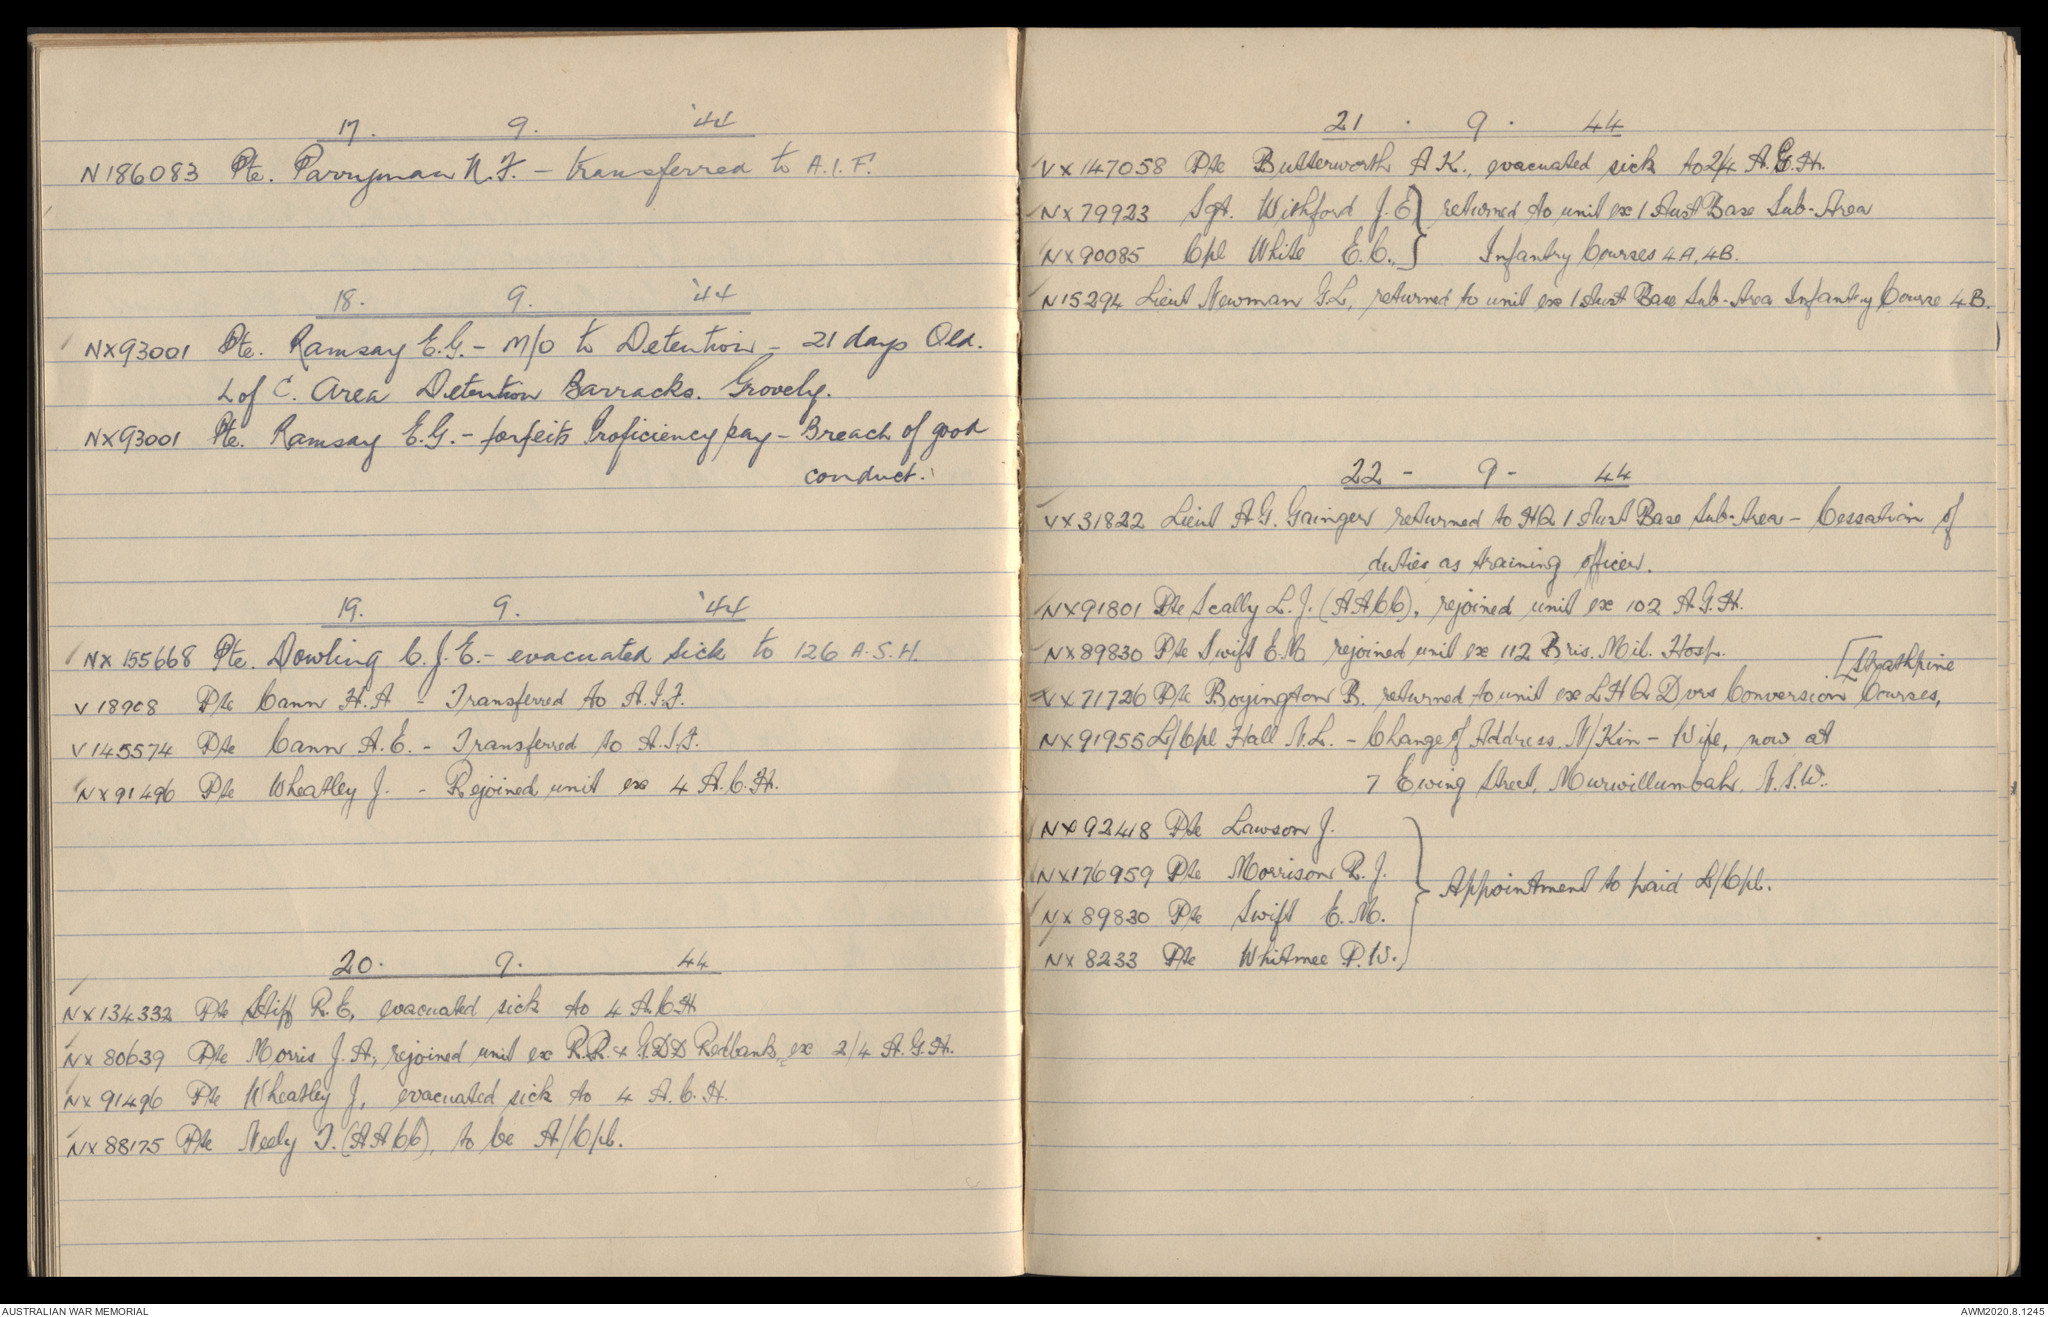 17. 9. '44
N186083 Pte. Parryman N.F. - transferred to A.I.F.
18. 9. '44
NX93001 Pte. Ramsay E.G. - M/O to Detention - 21 days Qld.
L of C. Area Detention Barracks. Grovely.
NX93001 Pte. Ramsay E.G. - forfeits Proficiency pay - Breach of good
conduct.
19. 9. '44
NX155668 Pte. Dowling C.J.E. - evacuated sick to 126 A.S.H.
V18908 Pte Cann H.A - Transferred to A.I.F.
V145574 Pte Cann A.E. - Transferred to A.I.F.
NX91496 Pte Wheatley J. - Rejoined unit ex 4 A.C.H.
20. 9. 44
NX134332 Pte Stiff R.E, evacuated sick to 4 A.C.H
NX80639 Pte Morris J.A, rejoined unit ex R.R. & G.D.D Redbank, ex 2/4 A.G.H.
NX91496 Pte Wheatley J, evacuated sick to 4 A.C.H.
NX88175 Pte Neely T. (AACC), to be A/Cpl.
21 . 9 . 44
VX147058 Pte Butterworth A K., evacuated sick to 2/4 A.G.H.
NX79923 Sgt. Withford J.E } returned to unit ex 1 Aust Base Sub-Area
NX90085 Cpl White E.C. } Infantry Courses 4A, 4B.
N15294 Lieut Newman G.L, returned to unit ex 1 Aust Base Sub-Area Infantry Course 4B.
22 - 9 - 44
VX31822 Lieut A.G. Gainger returned to HQ 1 Aust Base Sub-Area - Cessation of
duties as training officer.
NX91801 Pte Scally L.J. (AACC), rejoined unit ex 102 A.G.H.
NX89830 Pte Swift E.M, rejoined unit ex 112 Bris. Mil. Hosp.
[Strathpine
VX71726 Pte Boyington B. returned to unit ex LHQ Dvrs Conversion Courses,
NX91955 L/Cpl Hall N.L. - Change of Address N/Kin - Wife, now at
7 Ewing Street, Murwillumbah, N.S.W.
NX92418 Pte Lawson J.
NX176959 Pte Morrison R.J.
} Appointment to paid L/Cpl.
NX89830 Pte Swift E.M.
NX8233 Pte Whitmee P.W.
AUSTRALIAN WAR MEMORIAL
AWM2020.8.1245